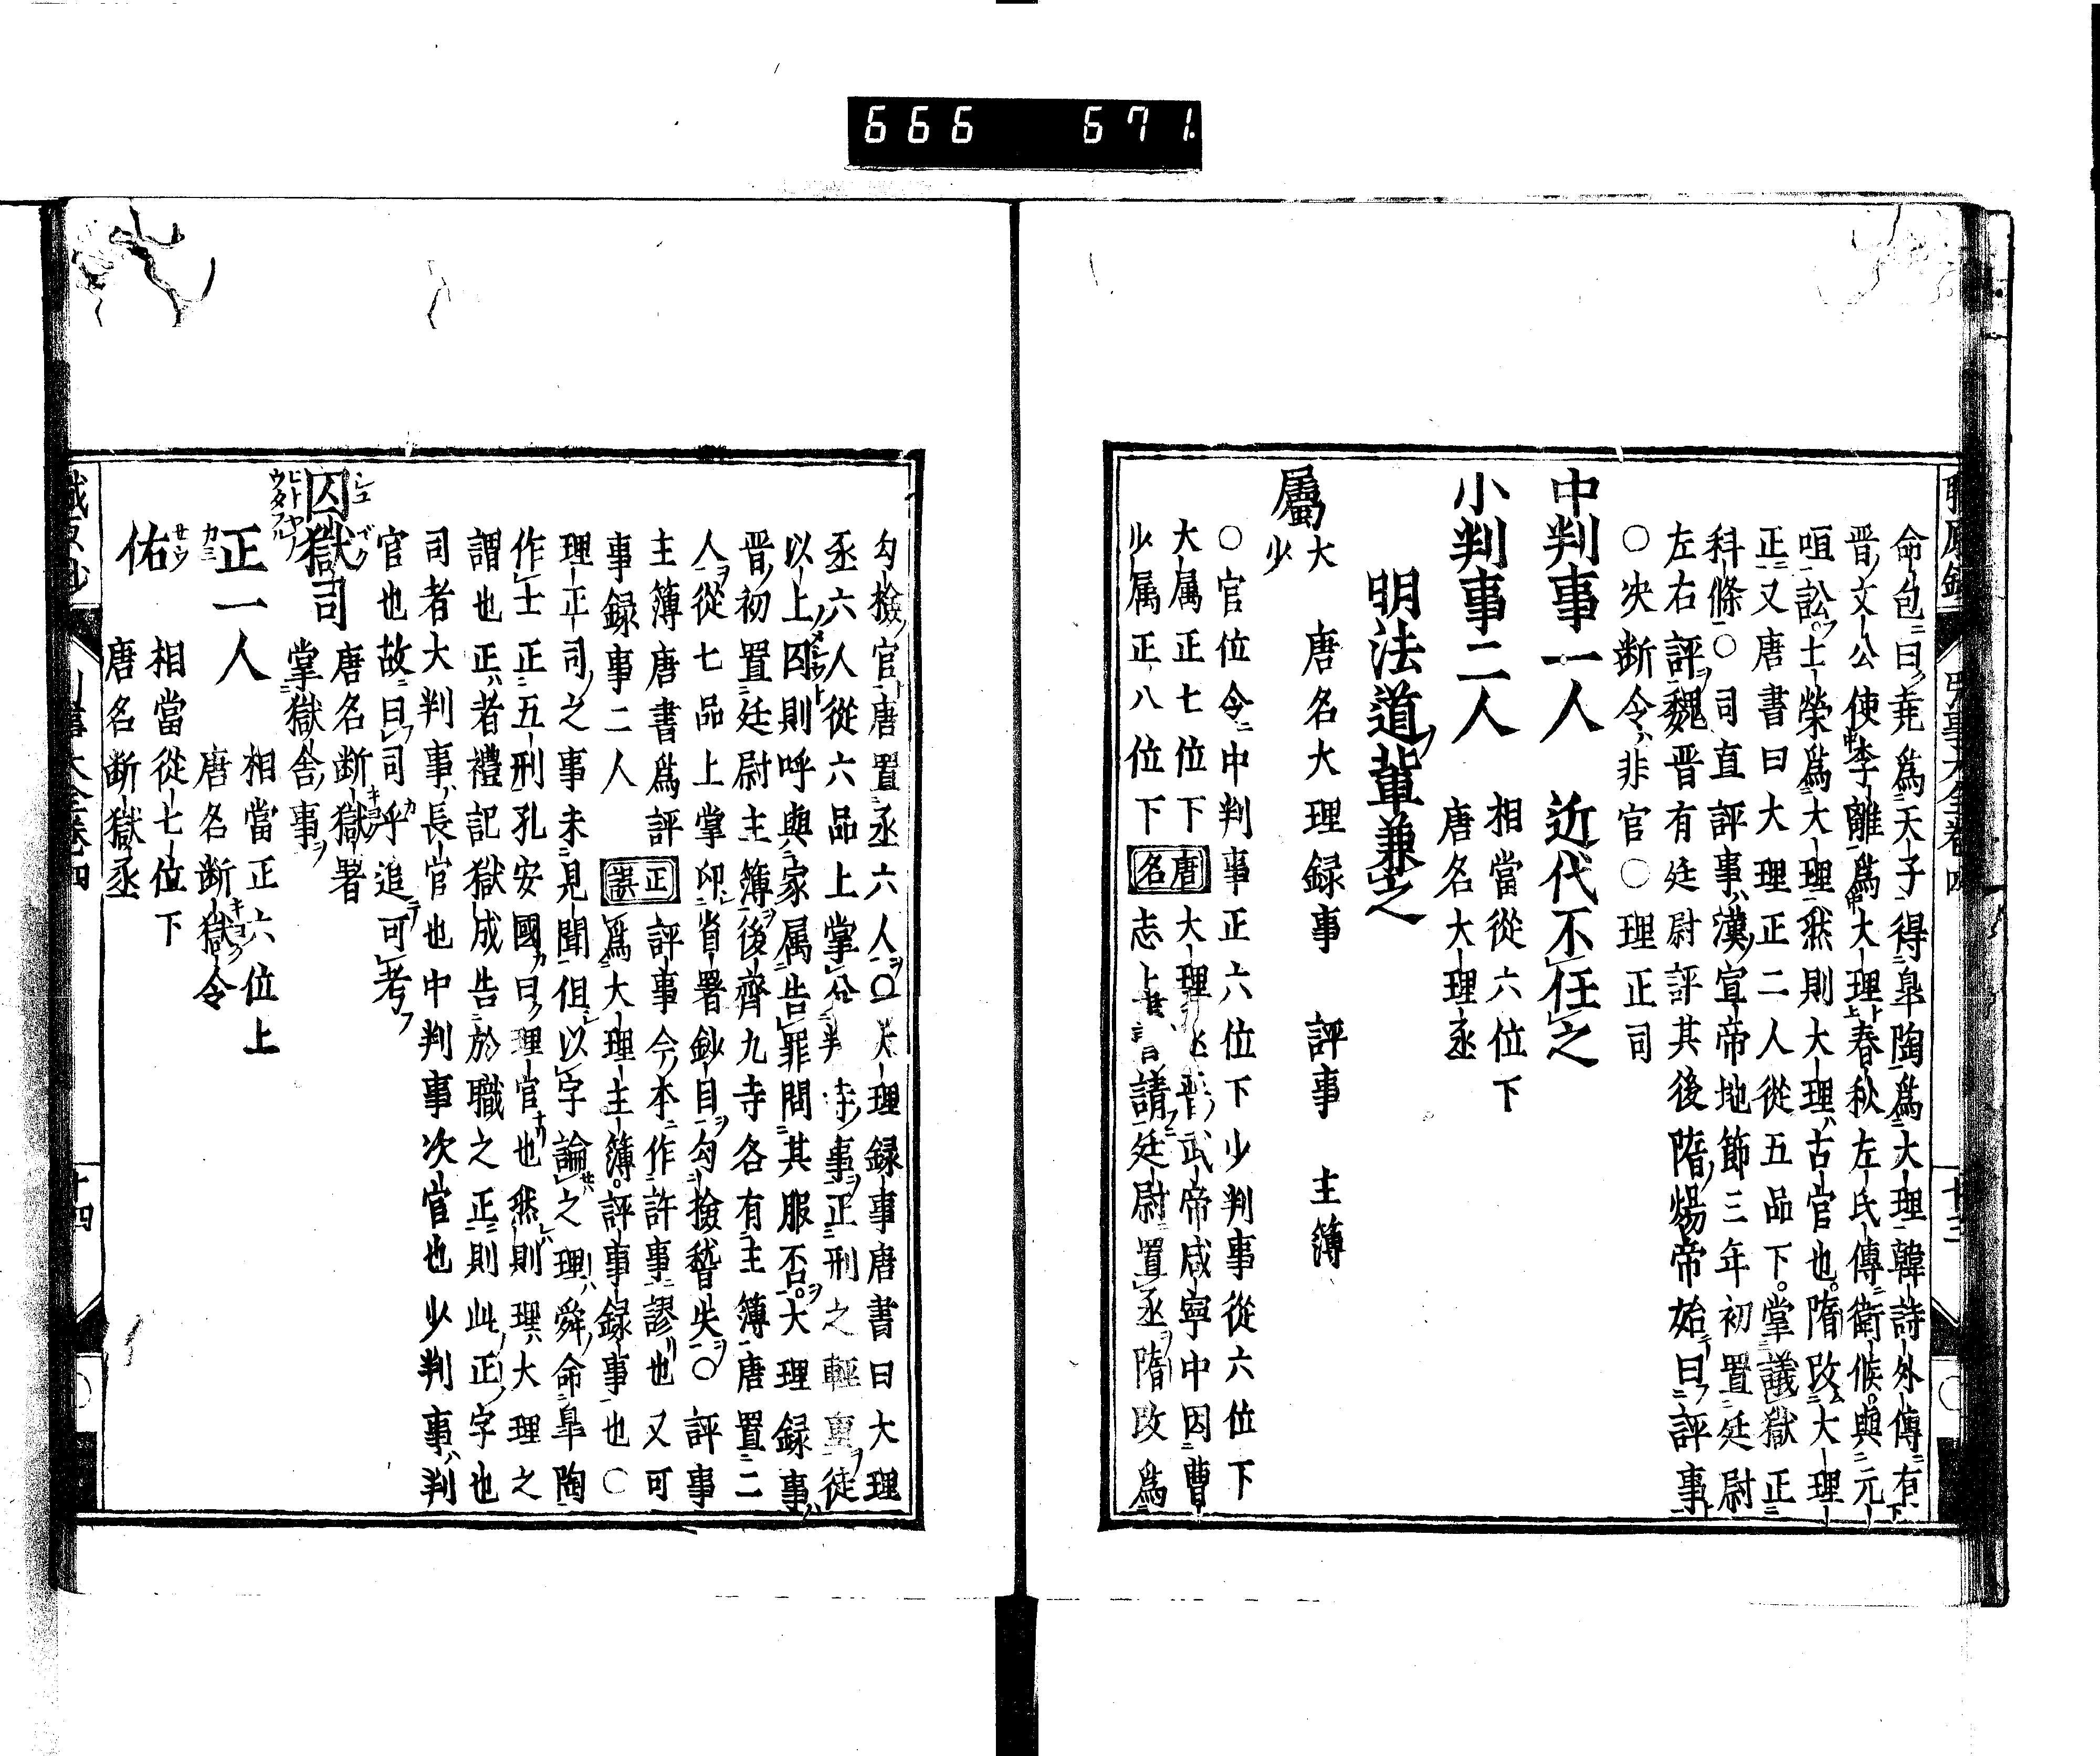 666 671.
命包曰尭爲天子得皐陶爲大理韓詩外傳有
晋文公使李離爲大理春秋左氏傳衛候與元
咺訟士榮爲大理然則大理古官也隋改大理
正又唐書曰大理正二人從五品下掌議獄正
科條○司直評事漢宣帝地節三年初置廷尉
左右評魏晋有廷尉評其後隋煬帝始曰評事
○决断令非官○理正司
中判事一人 近代不任之
小判事二人 相當從六位下
唐名大理丞
明法道軰兼之
屬 大
少 唐名大理録事 評事 主簿
○官位令中判事正六位下少判事從六位下
大属正七位下唐名大理 晋武帝咸寧中因曹
少属正八位下 志上 請廷尉置丞隋改爲
勾撿官唐置丞六人○大理録事唐書曰大理
丞六人從六品上掌分判寺事正刑之輕重徒
以上囚則呼與家属告罪問其服否大理録事
晋初置廷尉主簿後齊九寺各有主簿唐置二
人從七品上掌印省署鈔目勾撿嵆失○評事
主簿唐書爲評 正 評事今本作許事謬也又可
事録事二人 誤 爲大理主簿評事録事也○
理正司之事未見聞但以字論之理舜命皐陶
作士正五刑孔安國曰理官也然則理大理之
謂也正者禮記獄成告於職之正則此正字也
司者大判事長官也中判事次官也少判事判
官也故曰司乎追可考
囚獄司 唐名断獄署
掌獄舎事
正一人 相當正六位上
唐名断獄令
佑 相當從七位下
唐名断獄丞
十四